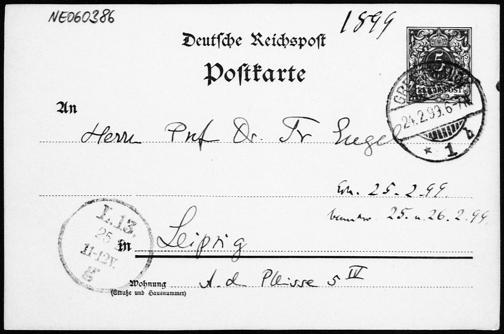 NE060386
1899
Deutsche Reichspost
Postkarte
5
REICHSPOST
An
Herrn Prof. Dr. Fr Engel
24.2.99.6-7N.
* 1 b
Erh. 25-2-99
25. u. 26.2.99
L.13.
25
11-12V.
g
in Leipzig
Wohnung
(Straße und Hausnummer)
A. d. Pleisse 5 IV